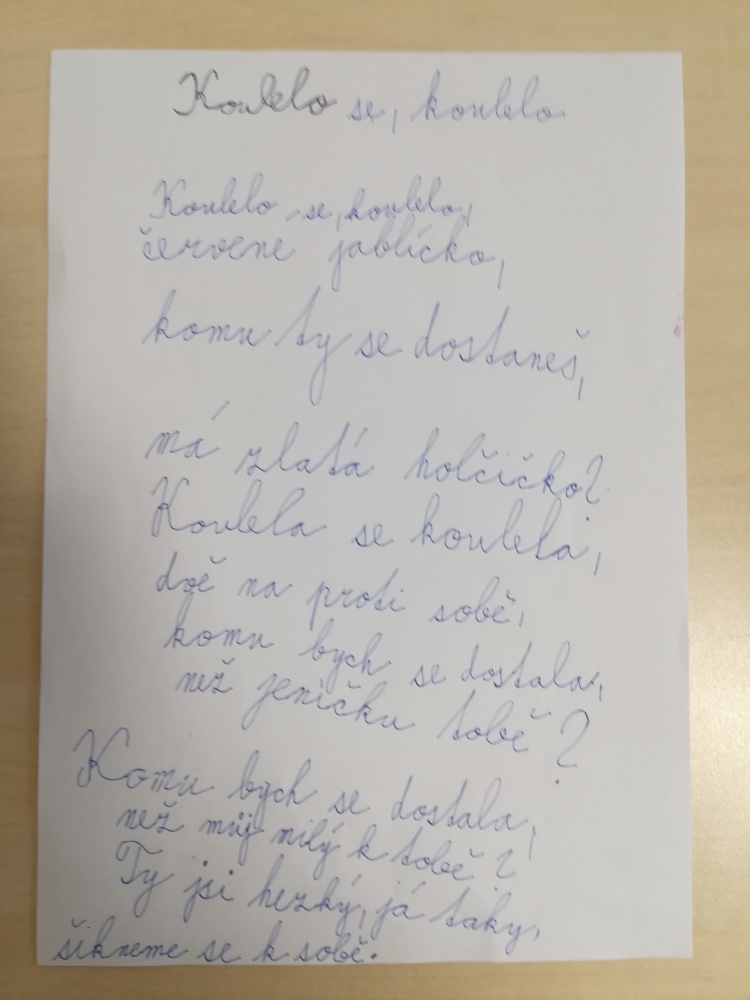 Koulelo se, koulelo
Koulelo se, koulelo,
červene jablíčko,
komu ty se dostaneš,
má zlatá holčičko?
Koulela se koulela,
dvě na proti sobě,
komu bych se dostala,
než jeničku tobě?
Komu bych se dostala,
než můj milý k tobě?
Ty jsi hezký, já taky,
šikneme se k sobě.